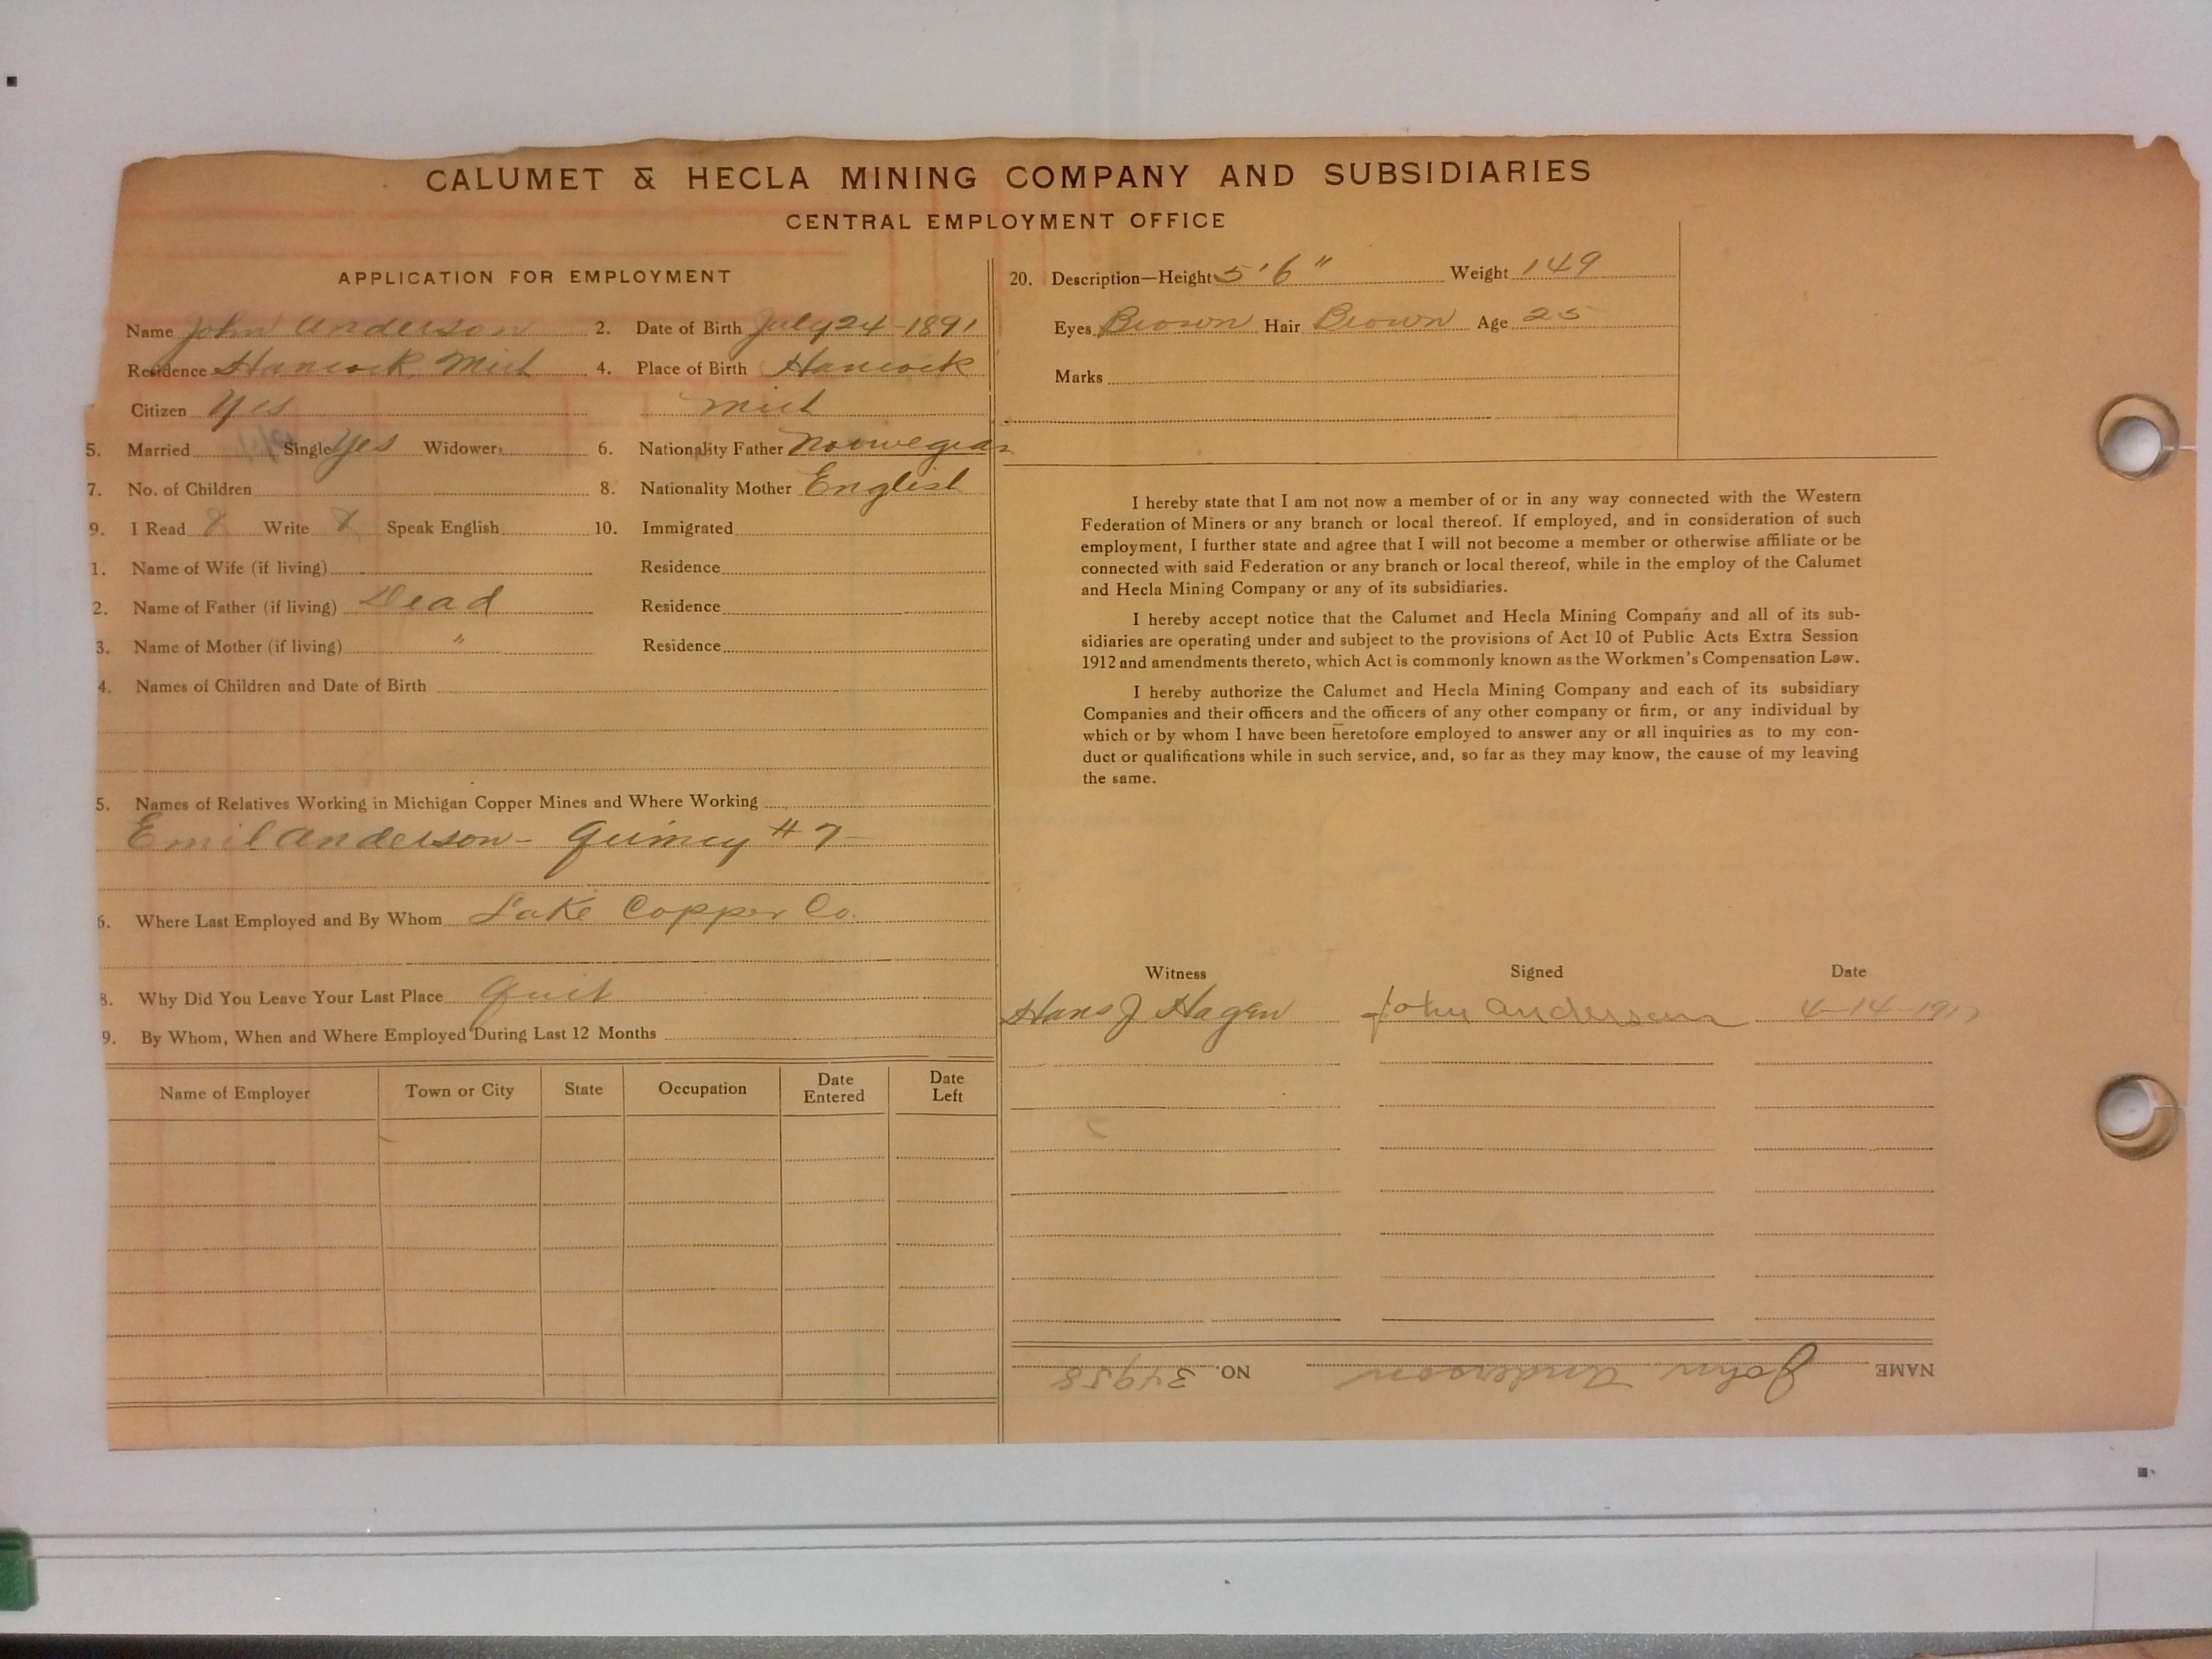 CALUMET & HECLA MINING COMPANY AND SUBSIDIARIES
CENTRAL EMPLOYMENT OFFICE
APPLICATION FOR EMPLOYMENT
Name John Anderson 2. Date of Birth July 24-1891
Residence Hancock, Mich 4. Place of Birth Hancock
Citizen Yes Mich
5. Married Single Yes Widower 6. Nationality Father Norwegian
7. No. of Children 8. Nationality Mother English
9. I Read X Write X Speak English 10. Immigrated
1. Name of Wife (if living) Residence
2. Name of Father (if living) Dead Residence
3. Name of Mother (if living) " Residence
4. Names of Children and Date of Birth
5. Names of Relatives Working in Michigan Copper Mines and Where Working
Emil Anderson - Quincy # 7
6. Where Last Employed and By Whom Lake Copper Co.
8. Why Did You Leave Your Last Place Quit
9. By Whom, When and Where Employed During Last 12 Months
Name of Employer Town or City State Occupation Date Entered Date Left
20. Description—Height 5'6" Weight 149
Eyes Brown Hair Brown Age 25
Marks
I hereby state that I am not now a member of or in any way connected with the Western
Federation of Miners or any branch or local thereof. If employed, and in consideration of such
employment, I further state and agree that I will not become a member or otherwise affiliate or be
connected with said Federation or any branch or local thereof, while in the employ of the Calumet
and Hecla Mining Company or any of its subsidiaries.
I hereby accept notice that the Calumet and Hecla Mining Company and all of its sub-
sidiaries are operating under and subject to the provisions of Act 10 of Public Acts Extra Session
1912 and amendments thereto, which Act is commonly known as the Workmen's Compensation Law.
I hereby authorize the Calumet and Hecla Mining Company and each of its subsidiary
Companies and their officers and the officers of any other company or firm, or any individual by
which or by whom I have been heretofore employed to answer any or all inquiries as to my con-
duct or qualifications while in such service, and, so far as they may know, the cause of my leaving
the same.
Witness Signed Date
Hans J Hagen John Anderson 4-14-1917
NAME John Anderson NO. 34958